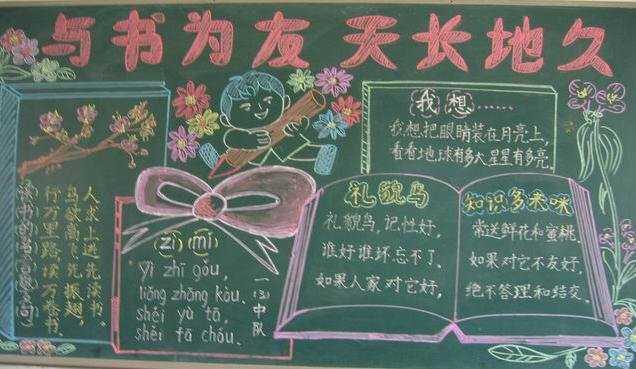 与书为友 天长地久
人求上进先读书。
鸟欲高飞先振翅,
行万里路,读万卷书.
读书的名言
(zì) (mí)
yì zhī gǒu,
liǎng zhāng kǒu.
shéi yù tā,
shéi fā chóu.
一(3)中队
我想……
我想把眼睛装在月亮上,
看看地球有多大星星有多亮.
礼貌鸟
礼貌鸟,记性好,
谁好谁坏忘不了.
如果人家对它好,
知识多来咪
常送鲜花和蜜桃.
如果对它不友好,
绝不答理和结交.